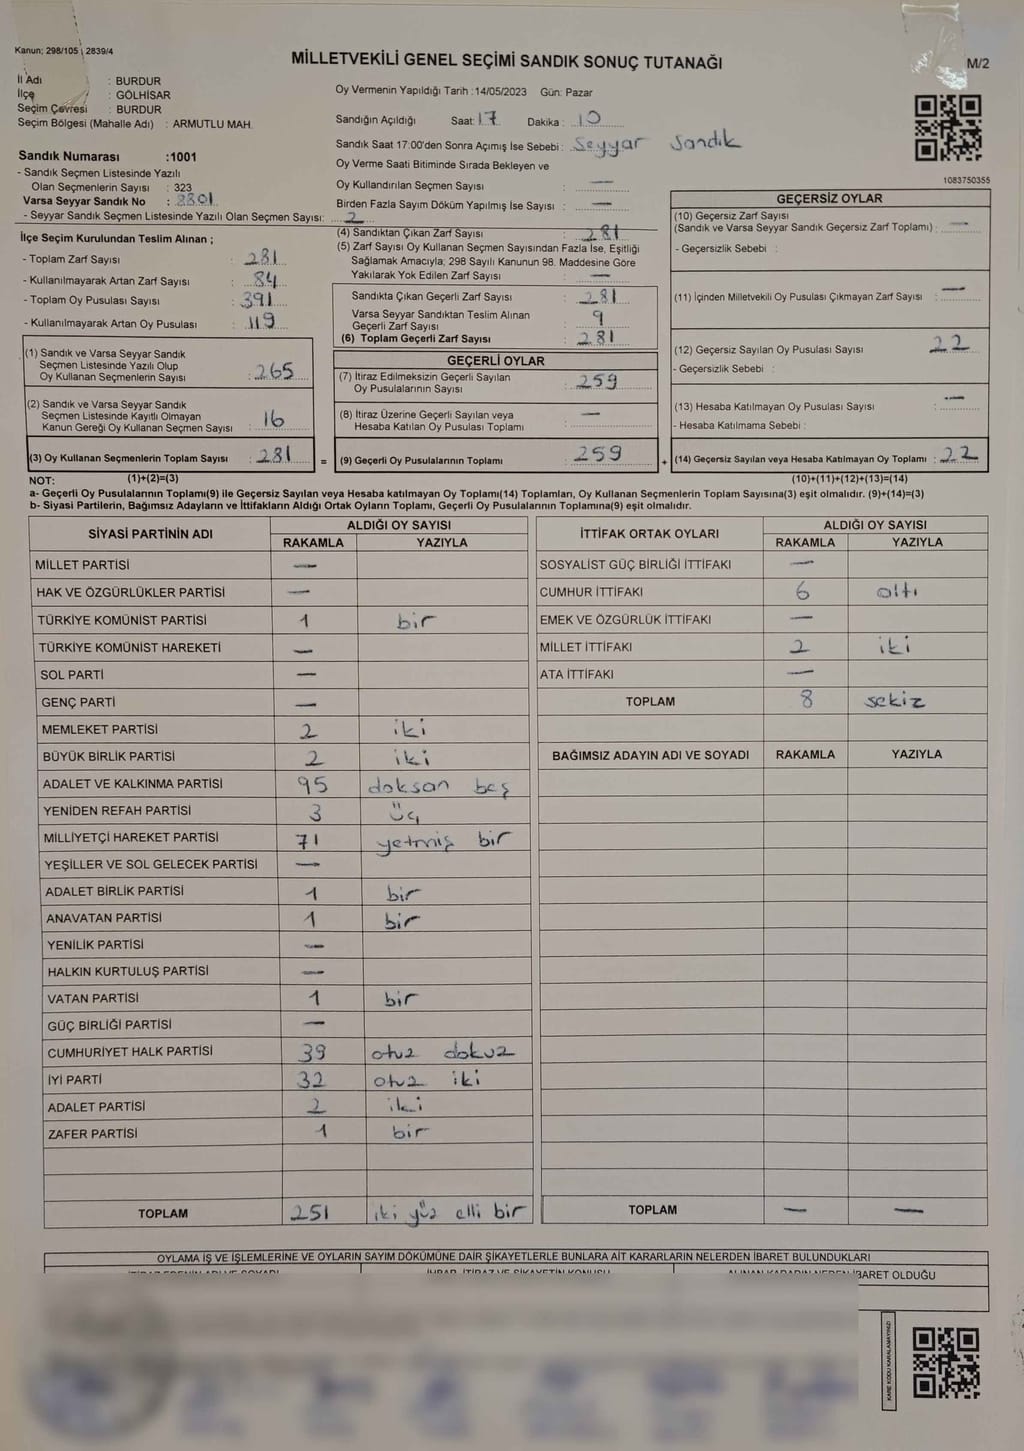 Kanun; 298/105 2839/4
MİLLETVEKİLİ GENEL SEÇİMİ SANDIK SONUÇ TUTANAĞI
M/2
İl Adı : BURDUR
İlçe : GÖLHİSAR
Seçim Çevresi : BURDUR
Seçim Bölgesi (Mahalle Adı) : ARMUTLU MAH.
Oy Vermenin Yapıldığı Tarih : 14/05/2023 Gün: Pazar
Sandığın Açıldığı Saat: 17 Dakika : 10
Sandık Saat 17:00'den Sonra Açımış İse Sebebi : Seyyar Sandık
Oy Verme Saati Bitiminde Sırada Bekleyen ve
Oy Kullandırılan Seçmen Sayısı : —
Birden Fazla Sayım Döküm Yapılmış İse Sayısı : —
1083750355
Sandık Numarası :1001
- Sandık Seçmen Listesinde Yazılı
Olan Seçmenlerin Sayısı : 323
Varsa Seyyar Sandık No :
- Seyyar Sandık Seçmen Listesinde Yazılı Olan Seçmen Sayısı: 2
İlçe Seçim Kurulundan Teslim Alınan ;
- Toplam Zarf Sayısı : 281
- Kullanılmayarak Artan Zarf Sayısı : 84
- Toplam Oy Pusulası Sayısı : 391
- Kullanılmayarak Artan Oy Pusulası : 119
(1) Sandık ve Varsa Seyyar Sandık
Seçmen Listesinde Yazılı Olup
Oy Kullanan Seçmenlerin Sayısı : 265
(2) Sandık ve Varsa Seyyar Sandık
Seçmen Listesinde Kayıtlı Olmayan
Kanun Gereği Oy Kullanan Seçmen Sayısı : 16
(3) Oy Kullanan Seçmenlerin Toplam Sayısı : 281 =
(4) Sandıktan Çıkan Zarf Sayısı : 281
(5) Zarf Sayısı Oy Kullanan Seçmen Sayısından Fazla İse, Eşitliği
Sağlamak Amacıyla; 298 Sayılı Kanunun 98. Maddesine Göre
Yakılarak Yok Edilen Zarf Sayısı : —
Sandıkta Çıkan Geçerli Zarf Sayısı : 281
Varsa Seyyar Sandıktan Teslim Alınan
Geçerli Zarf Sayısı : 9
(6) Toplam Geçerli Zarf Sayısı : 281
GEÇERLİ OYLAR
(7) İtiraz Edilmeksizin Geçerli Sayılan
Oy Pusulalarının Sayısı : 259
(8) İtiraz Üzerine Geçerli Sayılan veya
Hesaba Katılan Oy Pusulası Toplamı : —
(9) Geçerli Oy Pusulalarının Toplamı : 259 +
GEÇERSİZ OYLAR
(10) Geçersiz Zarf Sayısı
(Sandık ve Varsa Seyyar Sandık Geçersiz Zarf Toplamı) : —
- Geçersizlik Sebebi :
(11) İçinden Milletvekili Oy Pusulası Çıkmayan Zarf Sayısı : —
(12) Geçersiz Sayılan Oy Pusulası Sayısı : 22
- Geçersizlik Sebebi :
(13) Hesaba Katılmayan Oy Pusulası Sayısı : —
- Hesaba Katılmama Sebebi :
(14) Geçersiz Sayılan veya Hesaba Katılmayan Oy Toplamı : 22
NOT: (1)+(2)=(3) (10)+(11)+(12)+(13)=(14)
a- Geçerli Oy Pusulalarının Toplamı(9) ile Geçersiz Sayılan veya Hesaba katılmayan Oy Toplamı(14) Toplamları, Oy Kullanan Seçmenlerin Toplam Sayısına(3) eşit olmalıdır. (9)+(14)=(3)
b- Siyasi Partilerin, Bağımsız Adayların ve İttifakların Aldığı Ortak Oyların Toplamı, Geçerli Oy Pusulalarının Toplamına(9) eşit olmalıdır.
SİYASİ PARTİNİN ADI ALDIĞI OY SAYISI
RAKAMLA YAZIYLA
MİLLET PARTİSİ —
HAK VE ÖZGÜRLÜKLER PARTİSİ —
TÜRKİYE KOMÜNİST PARTİSİ 1 bir
TÜRKİYE KOMÜNİST HAREKETİ —
SOL PARTİ —
GENÇ PARTİ —
MEMLEKET PARTİSİ 2 iki
BÜYÜK BİRLİK PARTİSİ 2 iki
ADALET VE KALKINMA PARTİSİ 95 doksan beş
YENİDEN REFAH PARTİSİ 3 üç
MİLLİYETÇİ HAREKET PARTİSİ 71 yetmiş bir
YEŞİLLER VE SOL GELECEK PARTİSİ —
ADALET BİRLİK PARTİSİ 1 bir
ANAVATAN PARTİSİ 1 bir
YENİLİK PARTİSİ —
HALKIN KURTULUŞ PARTİSİ —
VATAN PARTİSİ 1 bir
GÜÇ BİRLİĞİ PARTİSİ —
CUMHURİYET HALK PARTİSİ 39 otuz dokuz
İYİ PARTİ 32 otuz iki
ADALET PARTİSİ 2 iki
ZAFER PARTİSİ 1 bir
TOPLAM 251 iki yüz elli bir
İTTİFAK ORTAK OYLARI ALDIĞI OY SAYISI
RAKAMLA YAZIYLA
SOSYALİST GÜÇ BİRLİĞİ İTTİFAKI —
CUMHUR İTTİFAKI 6 altı
EMEK VE ÖZGÜRLÜK İTTİFAKI —
MİLLET İTTİFAKI 2 iki
ATA İTTİFAKI —
TOPLAM 8 sekiz
BAĞIMSIZ ADAYIN ADI VE SOYADI RAKAMLA YAZIYLA
TOPLAM — —
OYLAMA İŞ VE İŞLEMLERİNE VE OYLARIN SAYIM DÖKÜMÜNE DAİR ŞİKAYETLERLE BUNLARA AİT KARARLARIN NELERDEN İBARET BULUNDUKLARI
İBARET OLDUĞU
KARE KODU KARALAMAYINIZ!